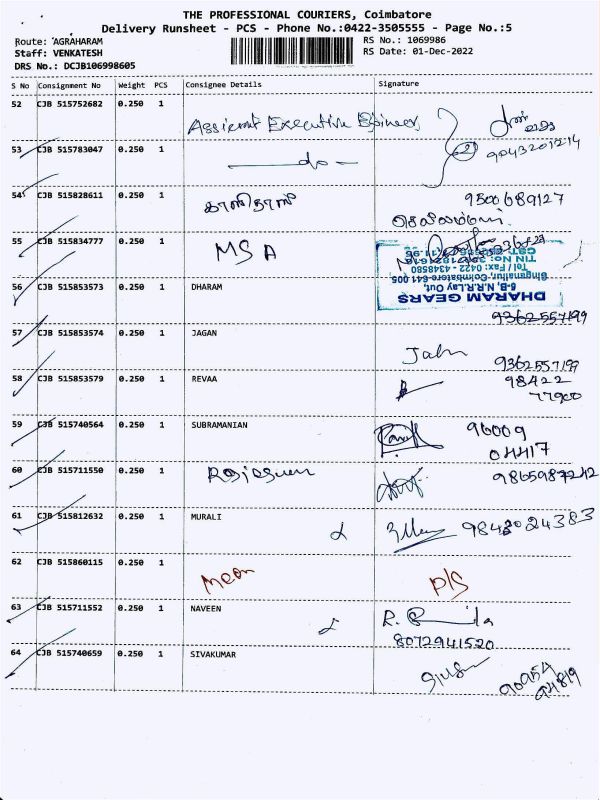 THE PROFESSIONAL COURIERS, Coimbatore
Delivery Runsheet - PCS - Phone No.:0422-3505555 - Page No.:5
Route: AGRAHARAM
RS No.: 1069986
Staff: VENKATESH
RS Date: 01-Dec-2022
DRS No.: DCJB106998605
S No Consignment No Weight PCS Consignee Details Signature
52 CJB 515752682 0.250 1 Assicent Executive Efineer
53 CJB 515783047 0.250 1 do 9043201214
54 CJB 515828611 0.250 1 காளிதாஸ் 9500689127
55 CJB 515834777 0.250 1 MSA
56 CJB 515853573 0.250 1 DHARAM
DHARAM GEARS
5-B, N.R.R.Lay Out,
Singanallur, Coimbatore-641 005
Tel / Fax: 0422 - 4348880
9362557199
57 CJB 515853574 0.250 1 JAGAN 9362557199
58 CJB 515853579 0.250 1 REVAA 98422
77900
59 CJB 515740564 0.250 1 SUBRAMANIAN 96009
04417
60 CJB 515711550 0.250 1 9865987242
61 CJB 515812632 0.250 1 MURALI
62 CJB 515860115 0.250 1 Meon P/S
63 CJB 515711552 0.250 1 NAVEEN
8072941520
64 CJB 515740659 0.250 1 SIVAKUMAR 90954
94819